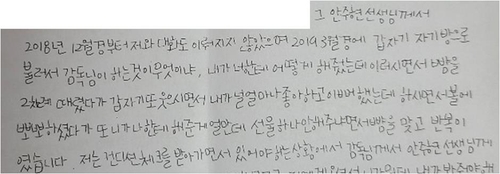 그 안주현 선생님께서
2018년 12월경부터 저와 대화도 이루어지지 않았으며 2019 3월경에 갑자기 자기방으로
불러서 감독님이 하는것이 무엇이냐, 내가 너한테 어떻게 해줬는데 이러시면서 뺨을
2차례 때렸다가 갑자기 또 웃으시면서 내가 널 얼마나 좋아하고 이뻐했는데 하시면서 볼에
뽀뽀하셨다가 또 니가 나한테 해준게 얼만데 선물하나 안해주냐면서 뺨을 맞고 반복이
였습니다. 저는 컨디션 체크를 받아가면서 있어야하는 상황에서 감독님께서 안주현 선생님께